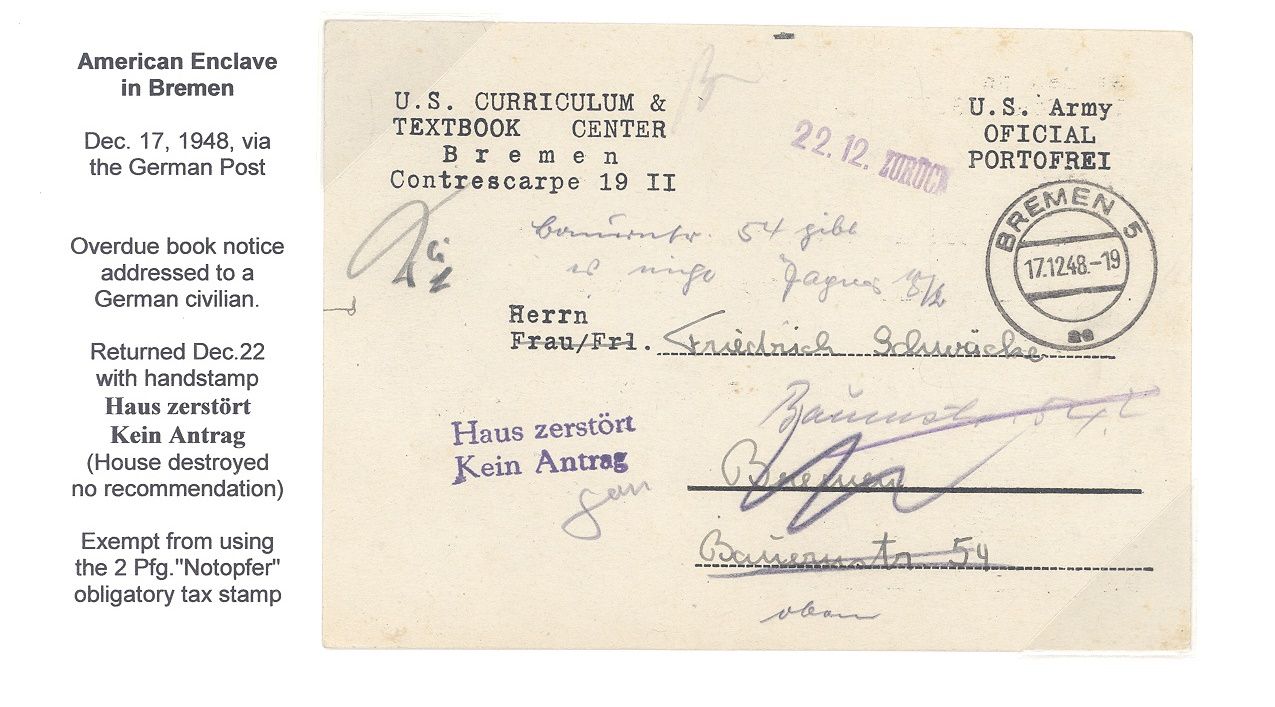 American Enclave
in Bremen
Dec. 17, 1948, via
the German Post
Overdue book notice
addressed to a
German civilian.
Returned Dec.22
with handstamp
Haus zerstört
Kein Antrag
(House destroyed
no recommendation)
Exempt from using
the 2 Pfg."Notopfer"
obligatory tax stamp
U.S. CURRICULUM &
TEXTBOOK CENTER
Bremen
Contrescarpe 19 II
U.S. Army
OFICIAL
PORTOFREI
22.12. ZURÜCK
BREMEN 5
17.12.48.-19
Bauernstr. 54 gibt
es nicht
Herrn
Frau/Frl. Friedrich Schwäcke
Haus zerstört
Kein Antrag
Bremen
Bauernstr 54
oben